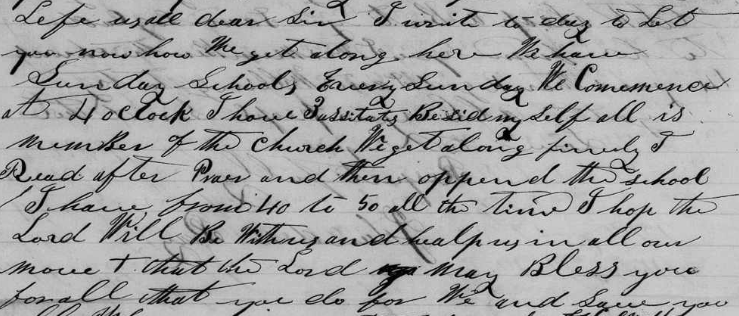 Life us all dear Sir I writ to day to Let
you now how We get along here We have
Sunday Schools Every Sunday We Comemence
at 4 oclock I have 3 assitats Besid my Self all is
member of the church We get along finely I
Read after Praer and then oppend the school
I have from 40 to 50 all the time I hop the
Lord Will Be With us and healp us in all our
move + that the Lord may Bless you
for all that you do for We and Save you